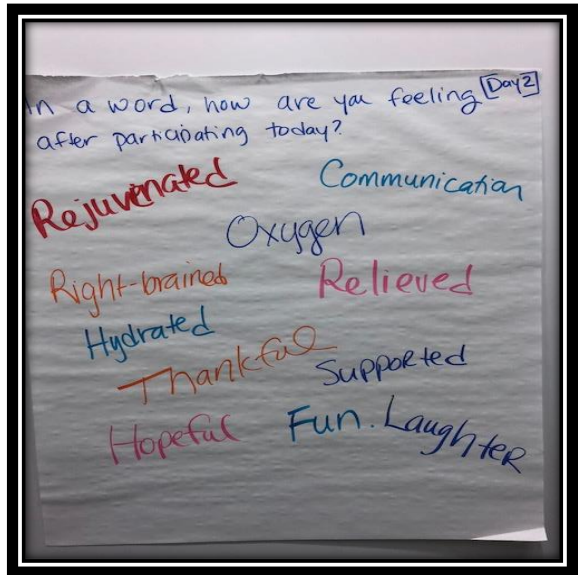 In a word, how are you feeling [Day 2]
after participating today?
Rejuvenated
Communication
Oxygen
Right-brained
Relieved
Hydrated
Thankful
Supported
Hopeful
Fun. Laughter